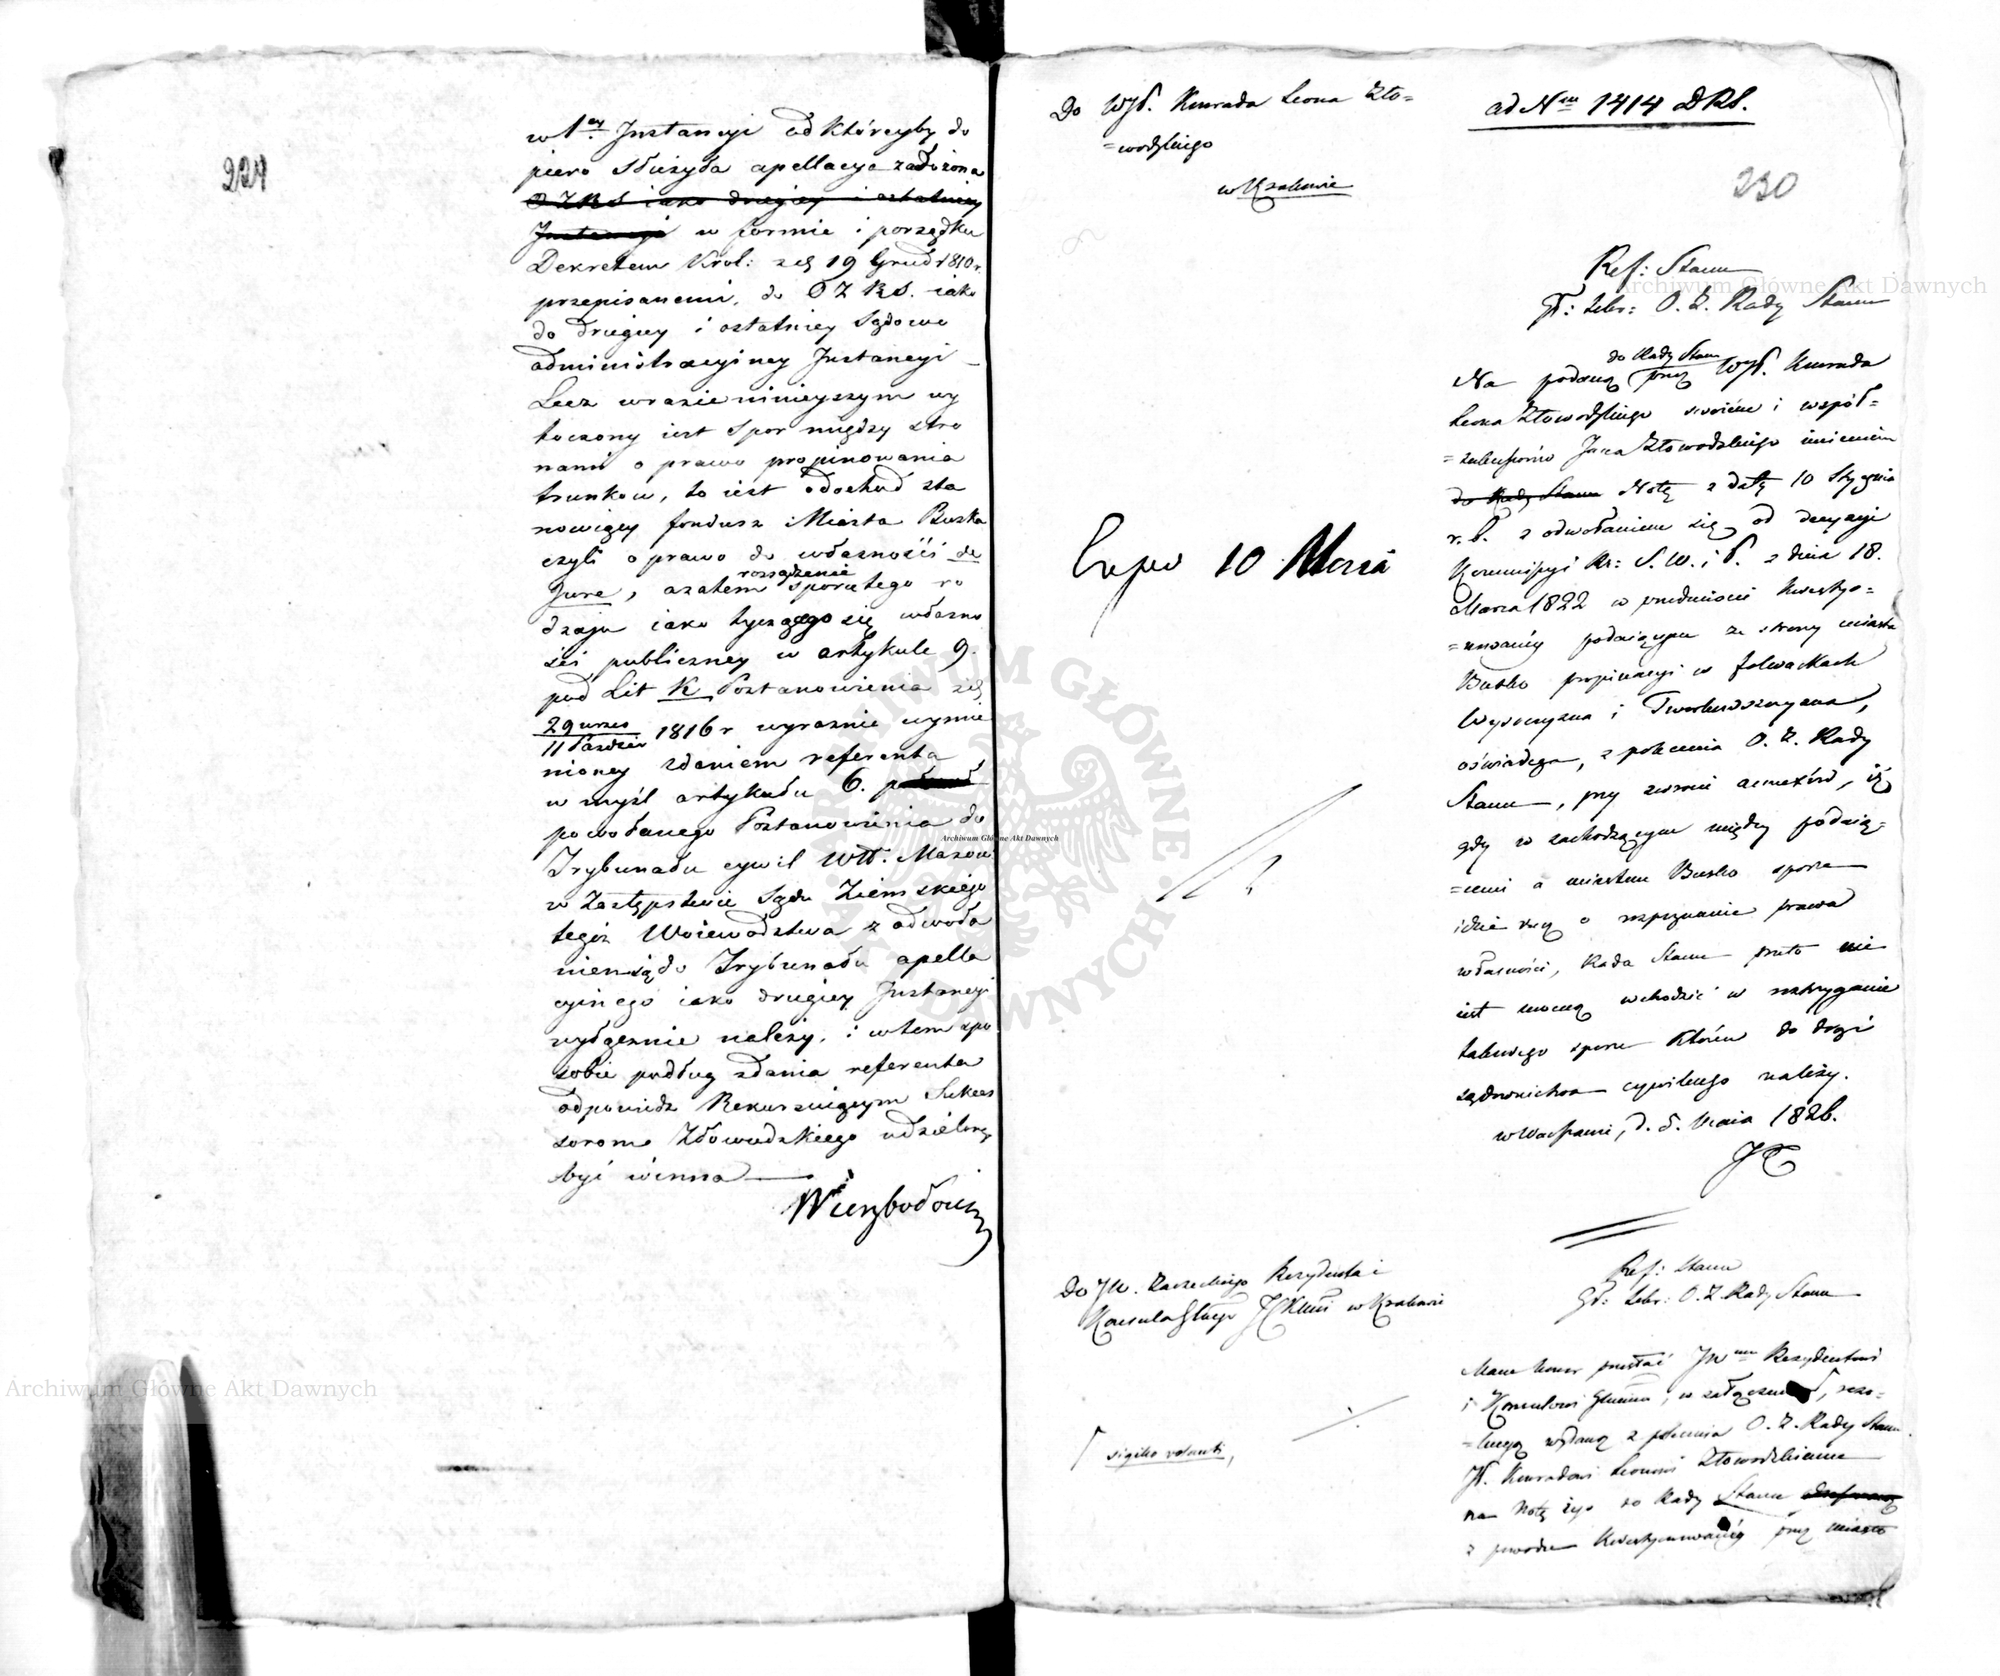 229
w 1ey Instancyi od któreyby do
piero służyła apellacya założona
O Z R S iako drugiey i ostatniey
Instancyi w formie i porządku
Dekretem Król: z d 19 Grud 1810 r.
przepisanemi, do O Z R S. iako
do drugiey i ostatniey Sądowo
administracyiney Instancyi –
Lecz w razie ninieyszym wy
toczony iest Spor między stro
nami o prawo propinowania
trunkow, to iest o dochod sta
nowiący fundusz Miasta Buska
czyli o prawo do własności de
Jure, a zatem rozsądzenie sporu tego ro
dzaju iako tyczącego się własno
ści publiczney w artykule 9.
pod Lit K Postanowienia z d
29 wrzes
11 Paździer 1816 r wyraznie wymie
nioney zdaniem referenta
w myśl artykułu 6.
powołanego Postanowienia do
Trybunału cywil Wtt. Mazow
w Zastępstwie Sądu Ziemskiego
tegoż Woiewodztwa z odwoła
niem się do Trybunału apella
cyinego iako drugiey Instancyi
wyłącznie należy, i w tem spo
sobie podług zdania referenta
odpowiedź Rekurruiącym Sukces
sorom Złowodzkiego udzieloną
być winna —
Wierzbołowicz
Do Wgo. Konrada Leona Zło=
=wodzkiego
w Krakowie
ad Nrm 1414 DRS.
230
Ref: Stanu
Gł: Sekr: O. Z. Rady Stanu
do Rady Stanu
Na podaną przez Wgo. Konrada
Leona Złowodzkiego swoiém i współ=
=sukcessorów Jana Złowodzkiego imieniem
do Rady Stanu Notę z datą 10 Stycznia
r. b. z odwołaniem się od decyzyi
Kommissyi Rz: S. W. i P. z dnia 18.
Marca 1822 w przedmiocie kwestyo=
=nowaney podaiącym ze strony miasta
Busko propinacyi w folwarkach
Wysoczyzna i
oświadcza, z polecenia O. Z. Rady
Stanu, przy zwrocie annexów, iż
gdy w zachodzącym między podaią=
=cemi a miastem Busko sporze
idzie rzecz o rozpoznanie prawa
własności, Rada Stanu przeto nie
iest mocną wchodzić w roztrzyganie
takowego sporu które do drogi
sądownictwa cywilnego należy.
w Warszawie, d. 5. Maia 1826.
JC
10 Marca
Do JW. Zarzeckiego Rezydenta i
Konsula Głnego JCKMci w Krakowie
Ref: Stanu
Gł: Sekr: O. Z. Rady Stanu
Mam honor przesłać JWmu Rezydentowi
i Konsulowi Głnemu, w załączeniu, rezo=
=lucyą wydaną z polecenia O. Z. Rady Stanu
W. Konradowi Leonowi Złowodzkiemu
na Notę iego do Rady Stanu
z powodu kwestyonowaney przez miasto
sigillo volanti,